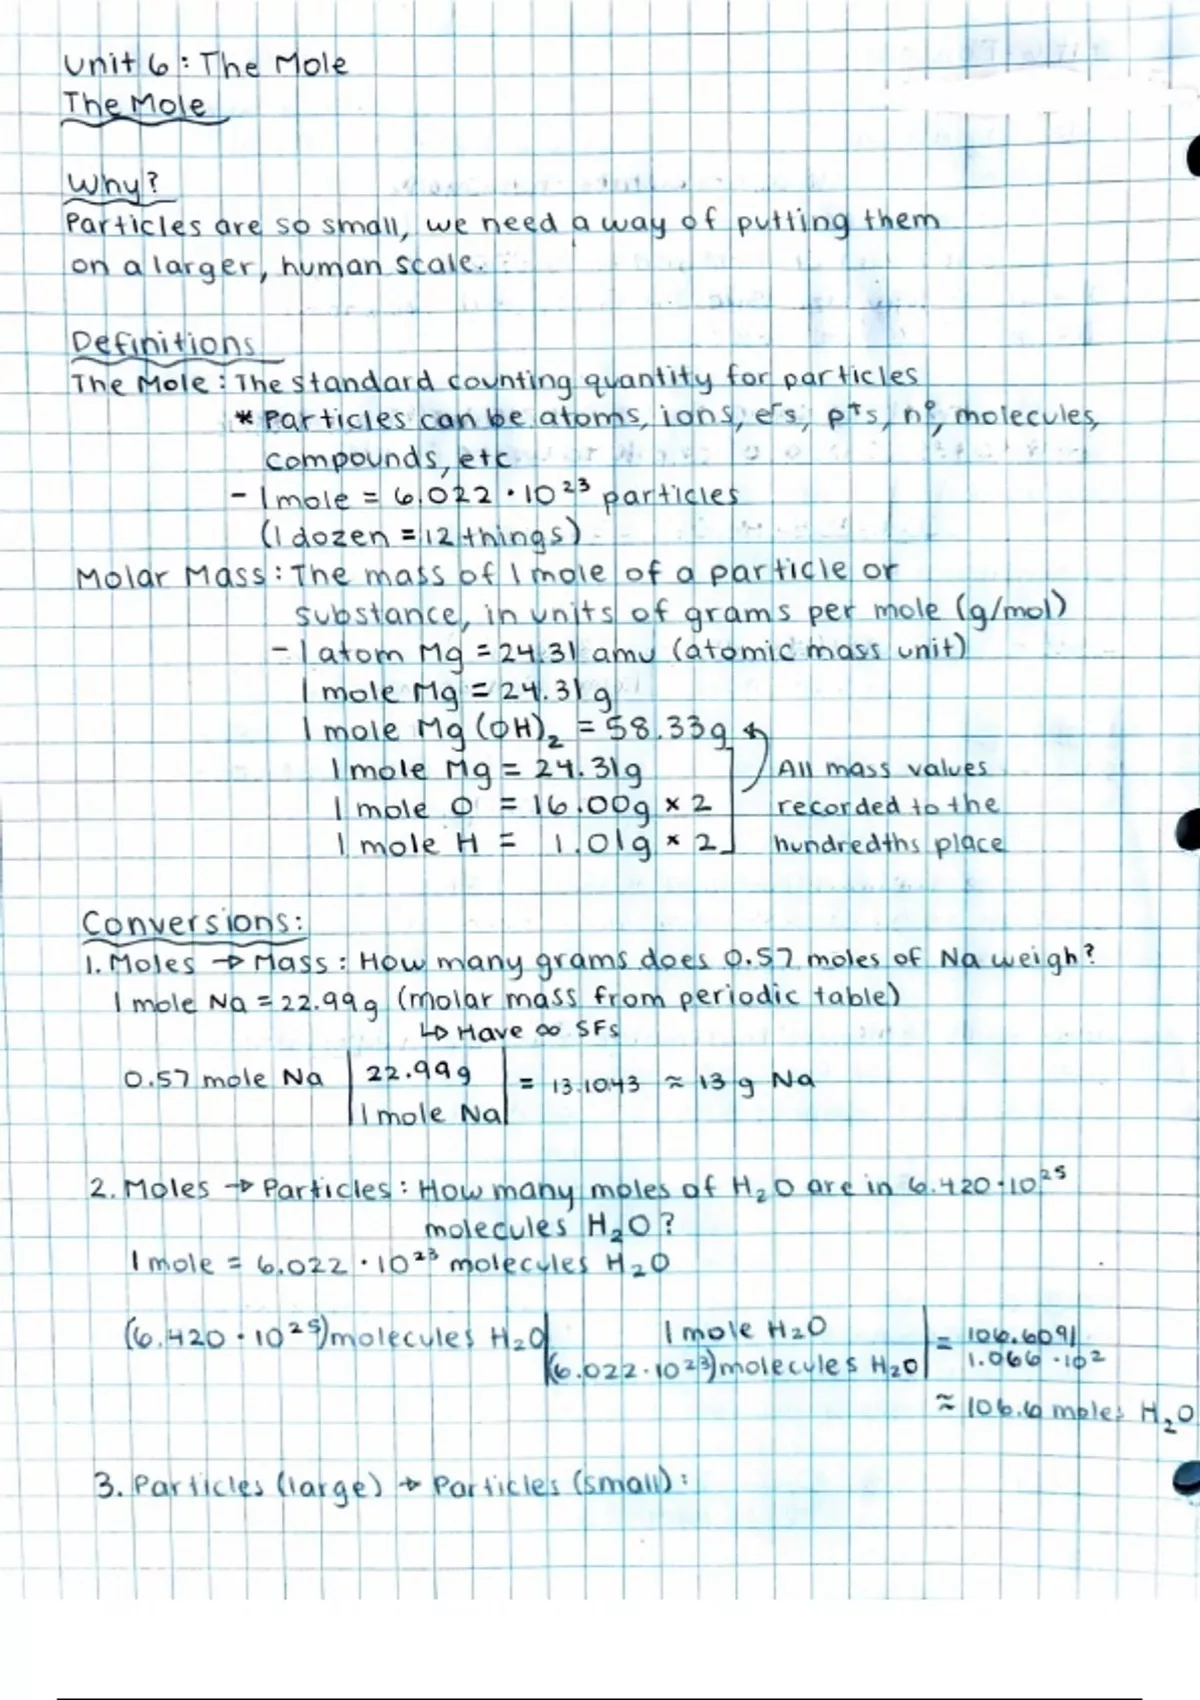 Unit 6: The Mole
The Mole
Why?
Particles are so small, we need a way of putting them
on a larger, human scale.
Definitions
The Mole: The standard counting quantity for particles
* Particles can be atoms, ions, e⁻s, p⁺s, n⁰, molecules,
compounds, etc
- 1 mole = 6.022 · 10²³ particles
(1 dozen = 12 things)
Molar Mass: The mass of 1 mole of a particle or
substance, in units of grams per mole (g/mol)
- 1 atom Mg = 24.31 amu (atomic mass unit)
1 mole Mg = 24.31 g
1 mole Mg(OH)₂ = 58.33g
1 mole Mg = 24.31g All mass values
1 mole O = 16.00g × 2 recorded to the
1 mole H = 1.01g × 2 hundredths place
Conversions:
1. Moles → Mass: How many grams does 0.57 moles of Na weigh?
1 mole Na = 22.99g (molar mass from periodic table)
↳ Have ∞ SFs
0.57 mole Na | 22.99g | = 13.1043 ≈ 13 g Na
1 mole Na
2. Moles → Particles: How many moles of H₂O are in 6.420·10²⁵
molecules H₂O?
1 mole = 6.022 · 10²³ molecules H₂O
(6.420 · 10²⁵)molecules H₂O | 1 mole H₂O | = 106.6091
(6.022·10²³)molecules H₂O 1.066 ·10²
≈ 106.6 moles H₂O
3. Particles (large) → Particles (small):